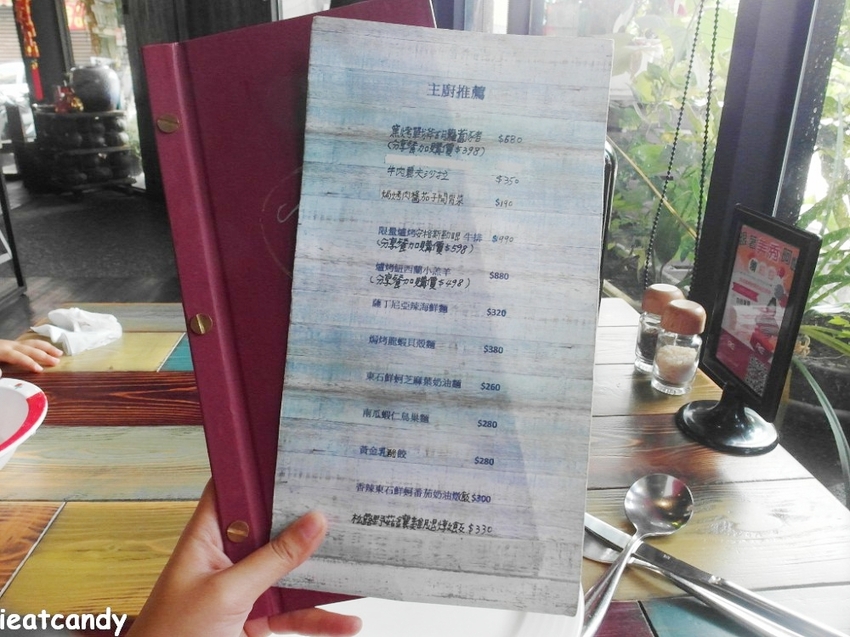 主廚推薦
$580
(分享餐加購價$398)
牛肉
$350
焗烤肉醬茄子
$190
限量爐烤安格斯肋眼 牛排 $990
(分享餐加購價$598)
爐烤紐西蘭小羔羊 $880
(分享餐加購價$498)
薩丁尼亞辣海鮮麵 $320
焗烤龍蝦貝殼麵 $380
東石鮮蚵芝麻葉奶油麵 $260
南瓜蝦仁鳥巢麵 $280
黃金乳 餃 $280
香辣東石鮮蚵番茄奶油燉飯 $300
$330
ieatcandy